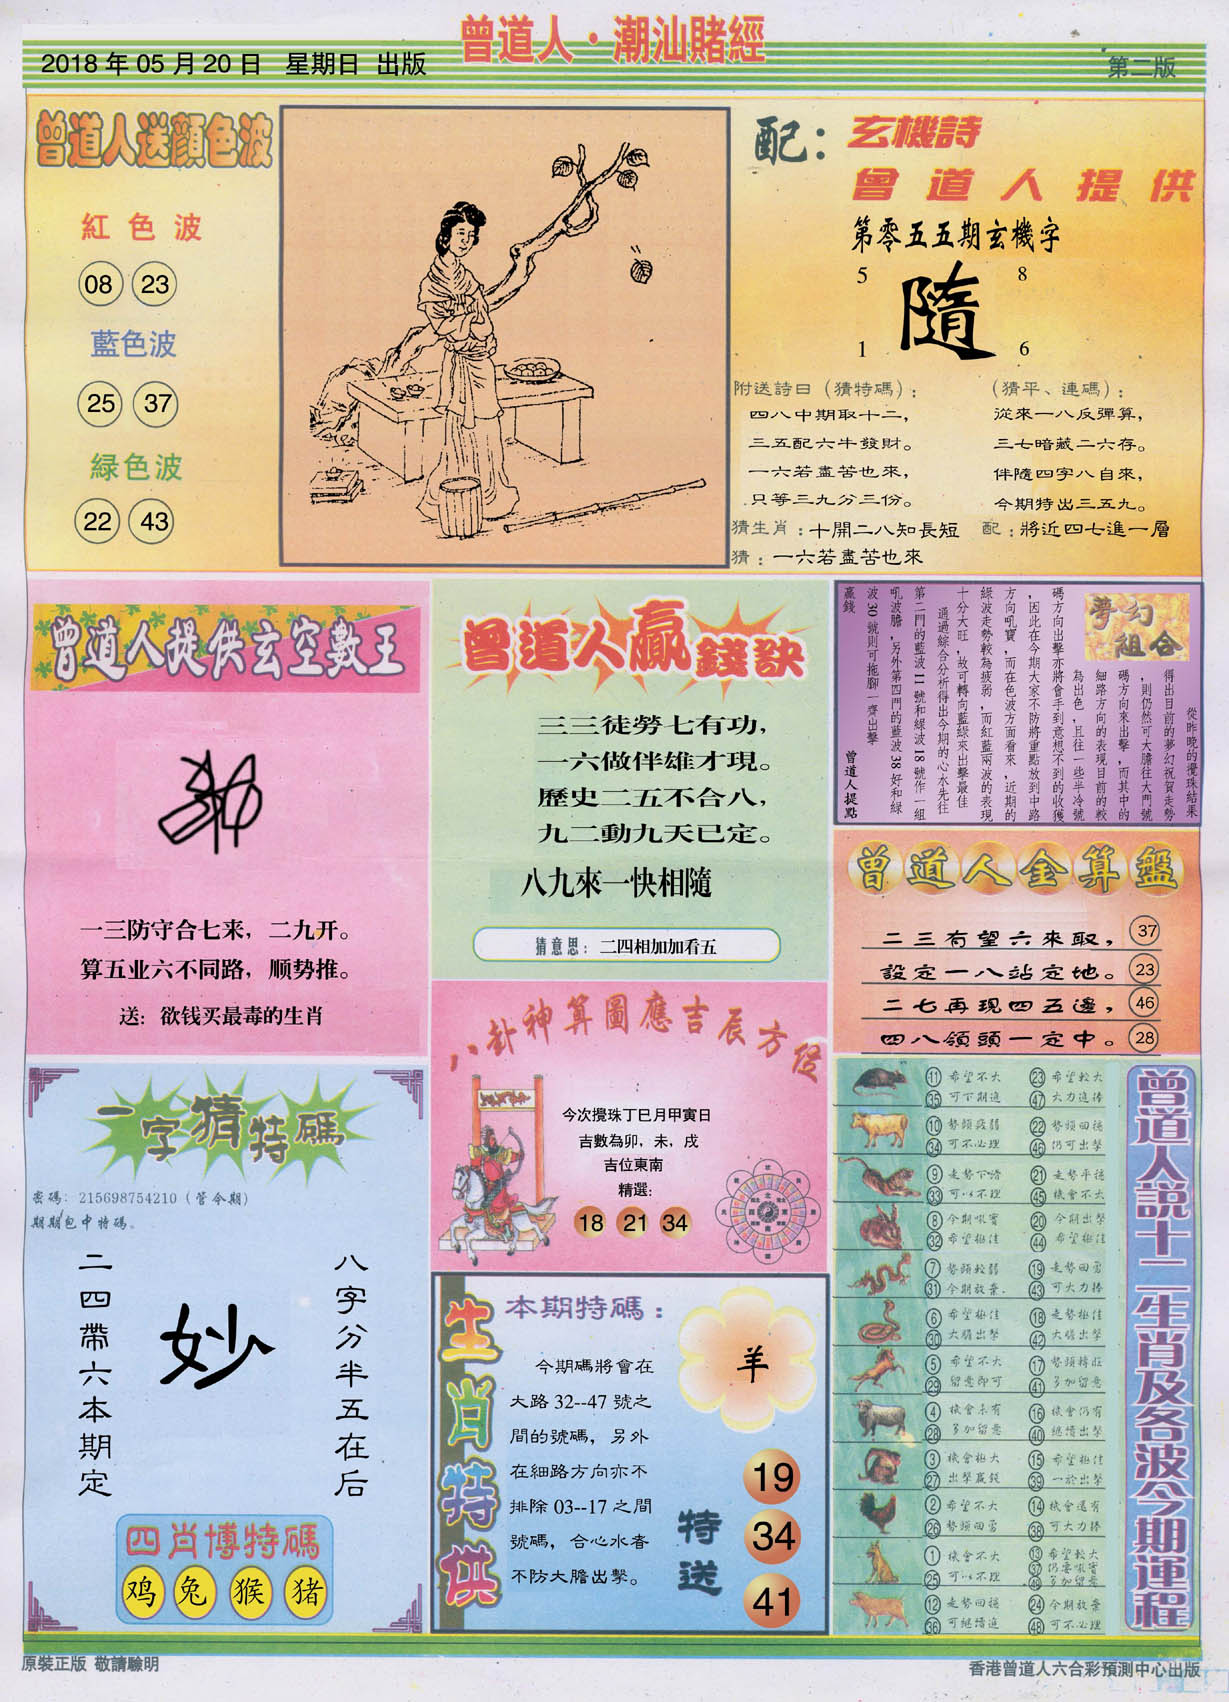 曾道人·潮汕賭經
2018 年 05 月 20 日 星期日 出版
第二版
曾道人送顏色波
紅色波
08 23
藍色波
25 37
緑色波
22 43
配：玄機詩
曾道人提供
第零五五期玄機字
5 8
隨
1 6
附送詩曰（猜特碼）：
四八中期取十二，
三五配六牛發財。
一六若盡苦也來，
只等三九分三份。
（猜平、連碼）：
從來一八反彈算，
三七暗藏二六存。
伴隨四字八自來，
今期特出三五九。
猜生肖：十開二八知長短 配：將近四七進一層
猜：一六若盡苦也來
曾道人提供玄空數王
一三防守合七来，二九开。
算五业六不同路，顺势推。
送：欲钱买最毒的生肖
曾道人贏錢訣
三三徒勞七有功，
一六做伴雄才現。
歷史二五不合八，
九二動九天已定。
八九來一快相隨
猜意思：二四相加加看五
夢幻組合
從昨晚的攪珠結果
得出目前的夢幻祝賀走勢
，則仍然可大膽往大門號
碼方向來出擊，而其中的
細路方向的表現目前的較
為出色，且往一些半冷號
碼方向出擊亦將會手到意想不到的收獲
，因此在今期大家不防將重點放到中路
方向吼寶，而在色波方面看來，近期的
綠波走勢較為疲弱，而紅藍兩波的表現
十分大旺，故可轉向藍綠來出擊最佳
通過綜合分析得出今期的心水先往
第二門的藍波 11 號和綠波 18 號作一組
吼波膽，另外第四門的藍波 38 好和綠
波 30 號則可拖腳一齊出擊
贏錢
曾道人提點
曾道人金算盤
二三有望六來取，37
設定一八站定地。23
二七再現四五邊，46
四八領頭一定中。28
八卦神算圖應吉辰方位
今次攪珠丁巳月甲寅日
吉數為卯，未，戌
吉位東南
精選：
18 21 34
一字猜特碼
密碼：215698754210（管令期）
期期包中特碼。
八字分半五在后
妙
二四帶六本期定
四肖博特碼
鸡 兔 猴 猪
生肖特供
本期特碼：
羊
今期碼將會在
大路 32--47 號之
間的號碼，另外
在細路方向亦不
排除 03--17 之間
號碼，合心水者
不防大膽出擊。
特送
19
34
41
曾道人說十二生肖及各波今期運程
11 希望不大 23 希望較大
35 可下期進 47 大力進捧
10 勢頭疲弱 22 勢頭回穩
34 可不必理 46 仍可出擊
9 走勢下滑 21 走勢平穩
33 可以不理 45 機會不大
8 今期吼寶 20 今期出擊
32 希望極佳 44 希望極佳
7 勢頭較弱 19 走勢回勇
31 今期放棄 43 可大力捧
6 希望極佳 18 走勢極佳
30 大膽出擊 42 大膽出擊
5 希望不大 17 勢頭轉旺
29 留意即可 41 多加留意
4 機會未有 16 機會仍有
28 多加留意 40 繼續出擊
3 機會極大 15 希望極佳
27 出擊贏錢 39 一於出擊
2 希望不大 14 機會還有
26 勢頭回勇 38 可大力捧
1 機會不大 13 希望較大
37 仍要吼實
25 可以不理 49 多加留意
12 走勢回穩 24 今期放棄
36 可繼續進 48 可不必理
原裝正版 敬請驗明
香港曾道人六合彩預測中心出版